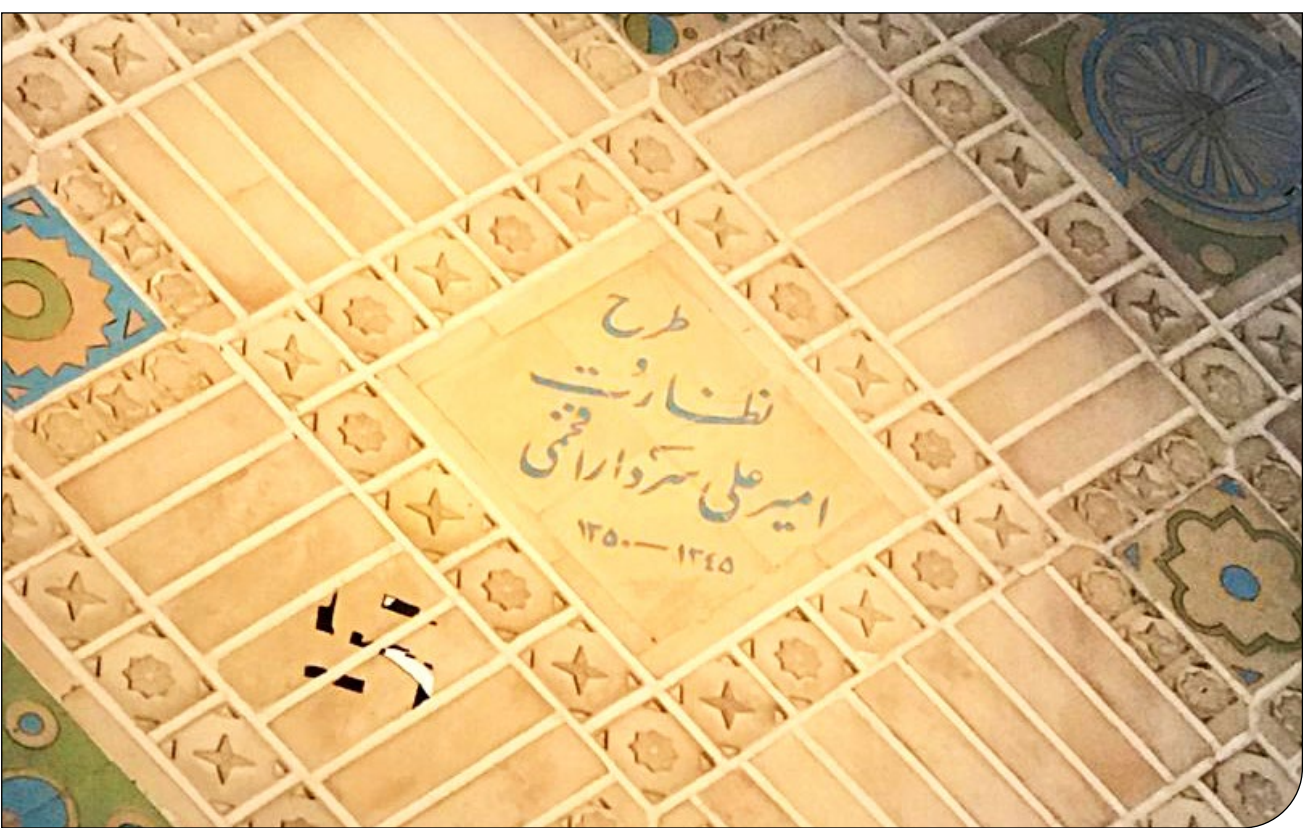 طرح
و
نظارت
امیرعلی سردارافخمی
۱۳۴۵—۱۳۵۰